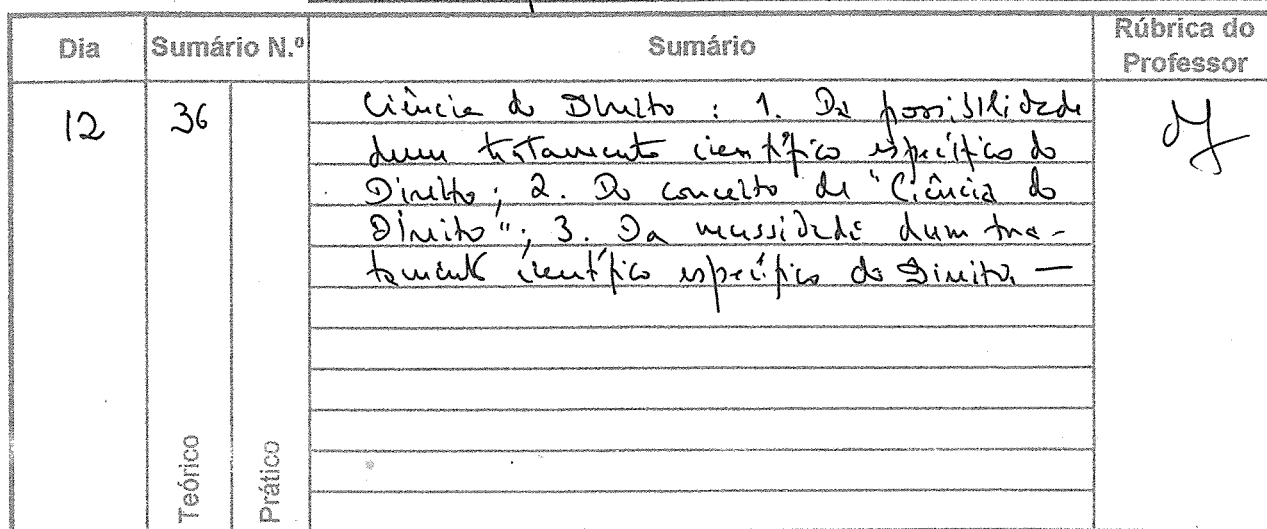 Dia
Sumário N.º
Sumário
Rúbrica do
Professor
12
36
Ciência do Direito : 1. Da possibilidade
dum tratamento científico específico do
Direito; 2. Do conceito de "Ciência do
Direito"; 3. Da necessidade dum tra-
tamento científico específico do Direito. —
Teórico
Prático